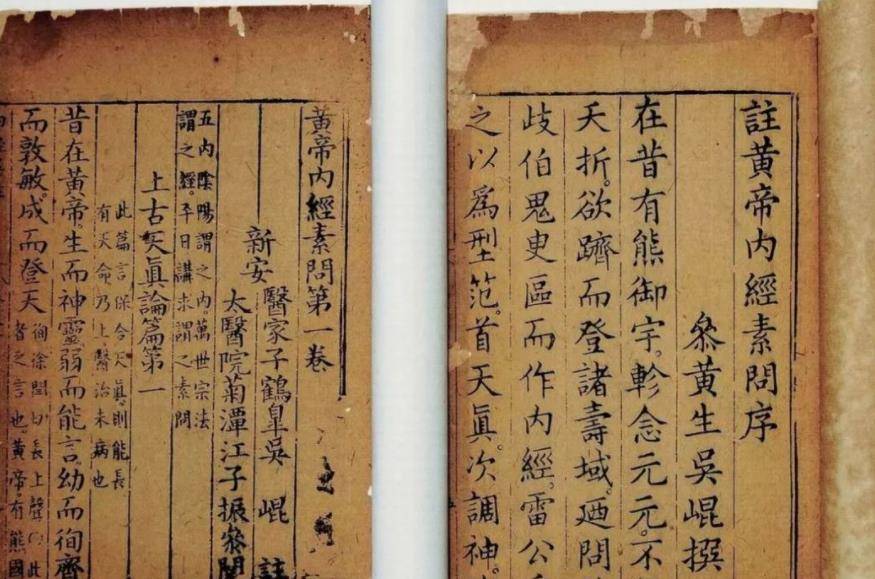 註黃帝內經素問序
叅黃生吳崐撰
在昔有熊御宇。軫念元元。不
夭折。欲躋而登諸壽域。廼問
歧伯鬼臾區而作內經。雷公
之以為型范。首天真。次調神。
黃帝內經素問第一卷
新安
醫家子鶴皐吳崐註
太醫院菊潭江子振叅閱
五內陰陽謂之內。萬世宗法
謂之經。平日講求謂之素問
上古天真論篇第一
此篇言保合天真。則能長
有天命乃上醫治未病也
昔在黃帝。生而神靈弱而能言。幼而徇齊
而敦敏。成而登天
徇徐閏切長上聲此
者之言也。黃帝。有熊國